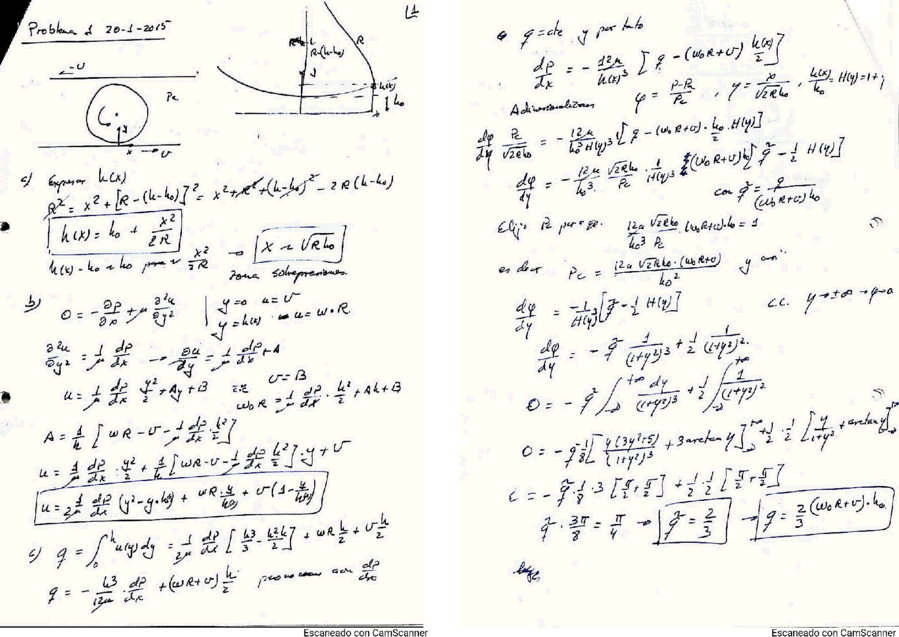 Problema 1 20-1-2015
L1
R
R-(h-h₀)
h(x)
h₀
← U
Pa
x → U
a) Expresar h(x)
R² = x² + [R - (h-h₀)]² = x² + R² + (h-h₀)² - 2R(h-h₀)
h(x) = h₀ + x²/2R
h(x) - h₀ ~ h₀ para x²/2R → x ~ √Rh₀
zona sobrepresiones.
b) 0 = -∂p/∂x + μ ∂²u/∂y² | y=0 u=U
y=h(x) u=ω₀R.
∂²u/∂y² = 1/μ dp/dx → ∂u/∂y = 1/μ dp/dx y + A
u = 1/μ dp/dx y²/2 + Ay + B U = B
ω₀R = 1/μ dp/dx · h²/2 + Ah + B
A = 1/h [ωR - U - 1/μ dp/dx h²/2]
u = 1/μ dp/dx · y²/2 + 1/h [ωR - U - 1/μ dp/dx h²/2] · y + U
u = 1/2μ dp/dx (y² - y·h(x)) + ωR y/h(x) + U(1 - y/h(x))
c) q = ∫₀ʰ u(y)dy = 1/2μ dp/dx [h³/3 - h²h/2] + ωR h/2 + U h/2
q = - h³/12μ · dp/dx + (ωR+U) h/2 dp/dx
q = cte y por tanto
dp/dx = - 12μ/h(x)³ [q - (ω₀R+U) h(x)/2]
Adimensionalizamos φ = P-Pa/Pc , y = x/√2Rh₀ , h(x)/h₀ = H(y) = 1+y
dφ/dy Pc/√2Rh₀ = - 12μ/h₀³H(y)³ [q - (ω₀R+U)· h₀/2 · H(y)]
dφ/dy = - 12μ/h₀³ √2Rh₀/Pc · 1/H(y)³ (ω₀R+U)h₀ [q̃ - 1/2 H(y)]
con q̃ = q/(ω₀R+U)h₀
Elijo Pc para que 12μ√2Rh₀/h₀³ Pc · (ω₀R+U)·h₀ = 1
es decir Pc = 12μ√2Rh₀·(ω₀R+U)/h₀² y así:
dφ/dy = -1/H(y)³ [q̃ - 1/2 H(y)] c.c. y→±∞ → φ→0
dφ/dy = - q̃ 1/(1+y²)³ + 1/2 1/(1+y²)².
0 = - q̃ ∫₋∞⁺∞ dy/(1+y²)³ + 1/2 ∫₋∞⁺∞ 1/(1+y²)²
0 = - q̃ 1/8 [y(3y²+5)/(1+y²)² + 3arctan y]₋∞⁺∞ + 1/2 · 1/2 [y/1+y² + arctan y]₋∞⁺∞
0 = - q̃ · 1/8 · 3 [π/2 + π/2] + 1/2 · 1/2 [π/2 + π/2]
q̃ · 3π/8 = π/4 → q̃ = 2/3 → q = 2/3 (ω₀R+U)·h₀
luego
Escaneado con CamScanner
Escaneado con CamScanner